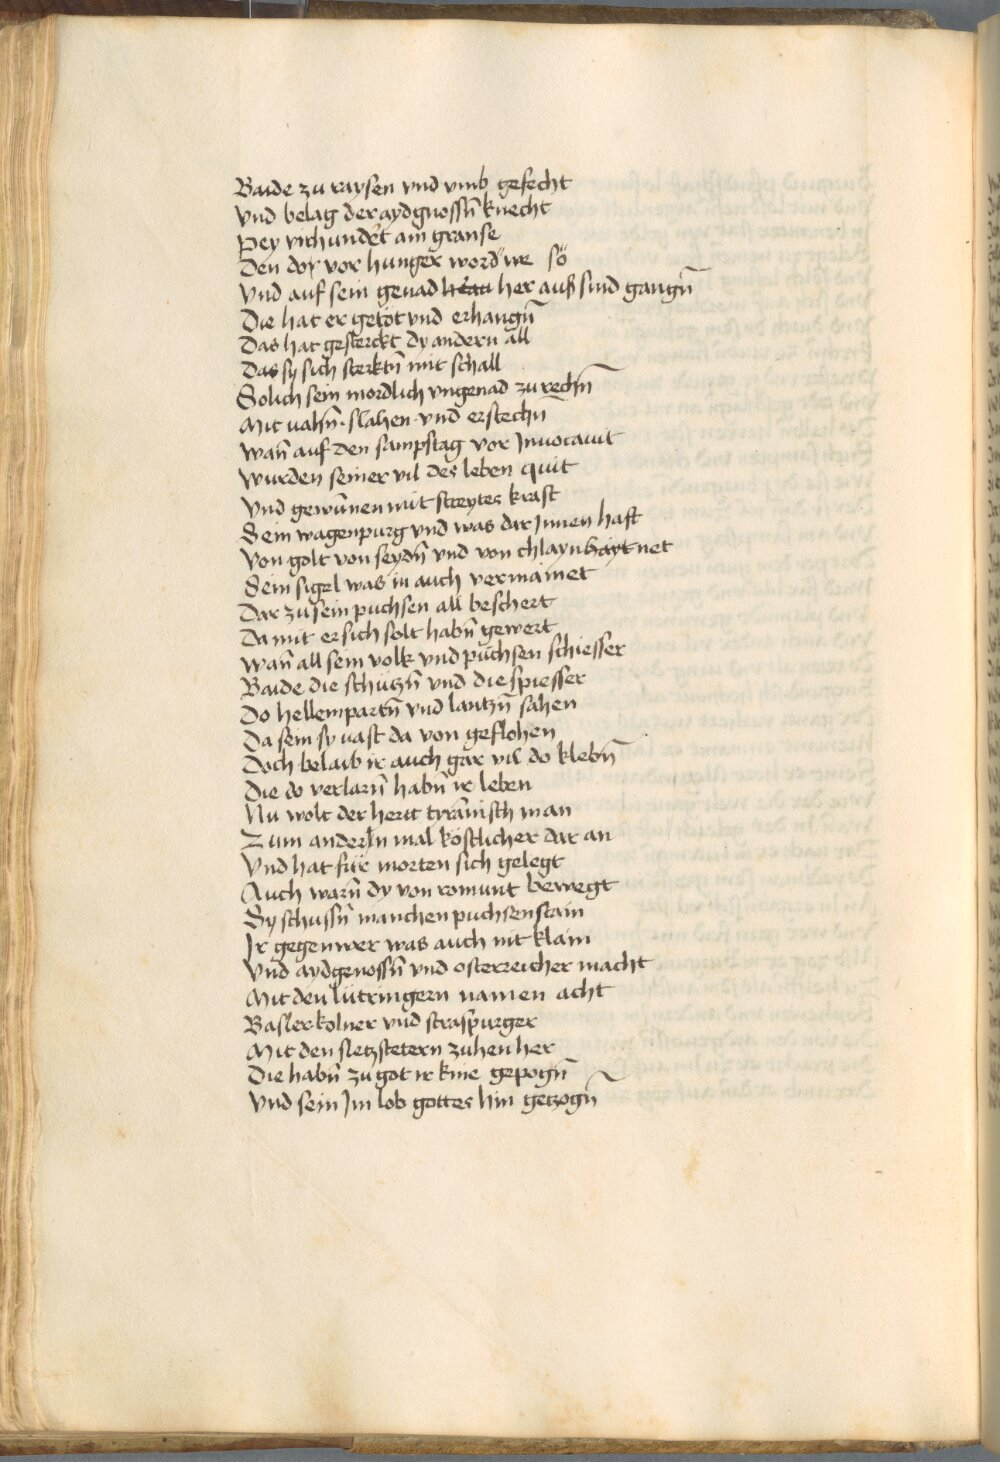 Baide zu raysen vnd vmb gefecht
Vnd belag der aydgnossn̄ knecht
Pey vithundēt am granse
Den do vor hunger word we so
Vnd auf sein genad her auß sind gangn̄
Die hat er getöt vnd erhangn̄
Das hat gesterckt dy andern all
Das sy sich sterktn̄ mit schall
Solich sein mordlich vngenad zu rechn̄
Mit vahn̄ · slahen · vnd erstechn̄
Wan̄ auf den sampstag vor Jnvocauit
Wurden seiner vil des leben quit
Vnd gewūnen mit streytes kraft
Sein wagenpurg vnd was dar Jnnen haft
Von golt von seydn̄ vnd von chlaynhaytnet
Sein sigel was in auch vermainet
Dar zu sein puchsen all beschert
Da mit er sich solt habn̄ gewert
Wan̄ all sein volk vnd püchsen schiesser
Baide die schützn̄ vnd die spiesser
Do hellempartn̄ vnd lantzn̄ sahen
Da sein sy vast da von geflohen
Doch belaib ir auch gar vil do klebn̄
Die do verlarn̄ habn̄ ir leben
Nu wolt der herit tyrānisch man
Zum andern mal köstlicher dar an
Vnd hat für morten sich gelegt
Auch warn̄ dy von romunt bewegt
Sy schussn̄ manchen puchsenstain
Ir gegenwer was auch nit klain
Vnd aydgenossn̄ vnd osterreicher macht
Mit den lütringern namen acht
Basler kolner vnd straspurger
Mit den sletzstetern zuhen her
Die habn̄ zu got ir knie gepogn̄
Vnd sein Jm lob gottes hin getzogn̄